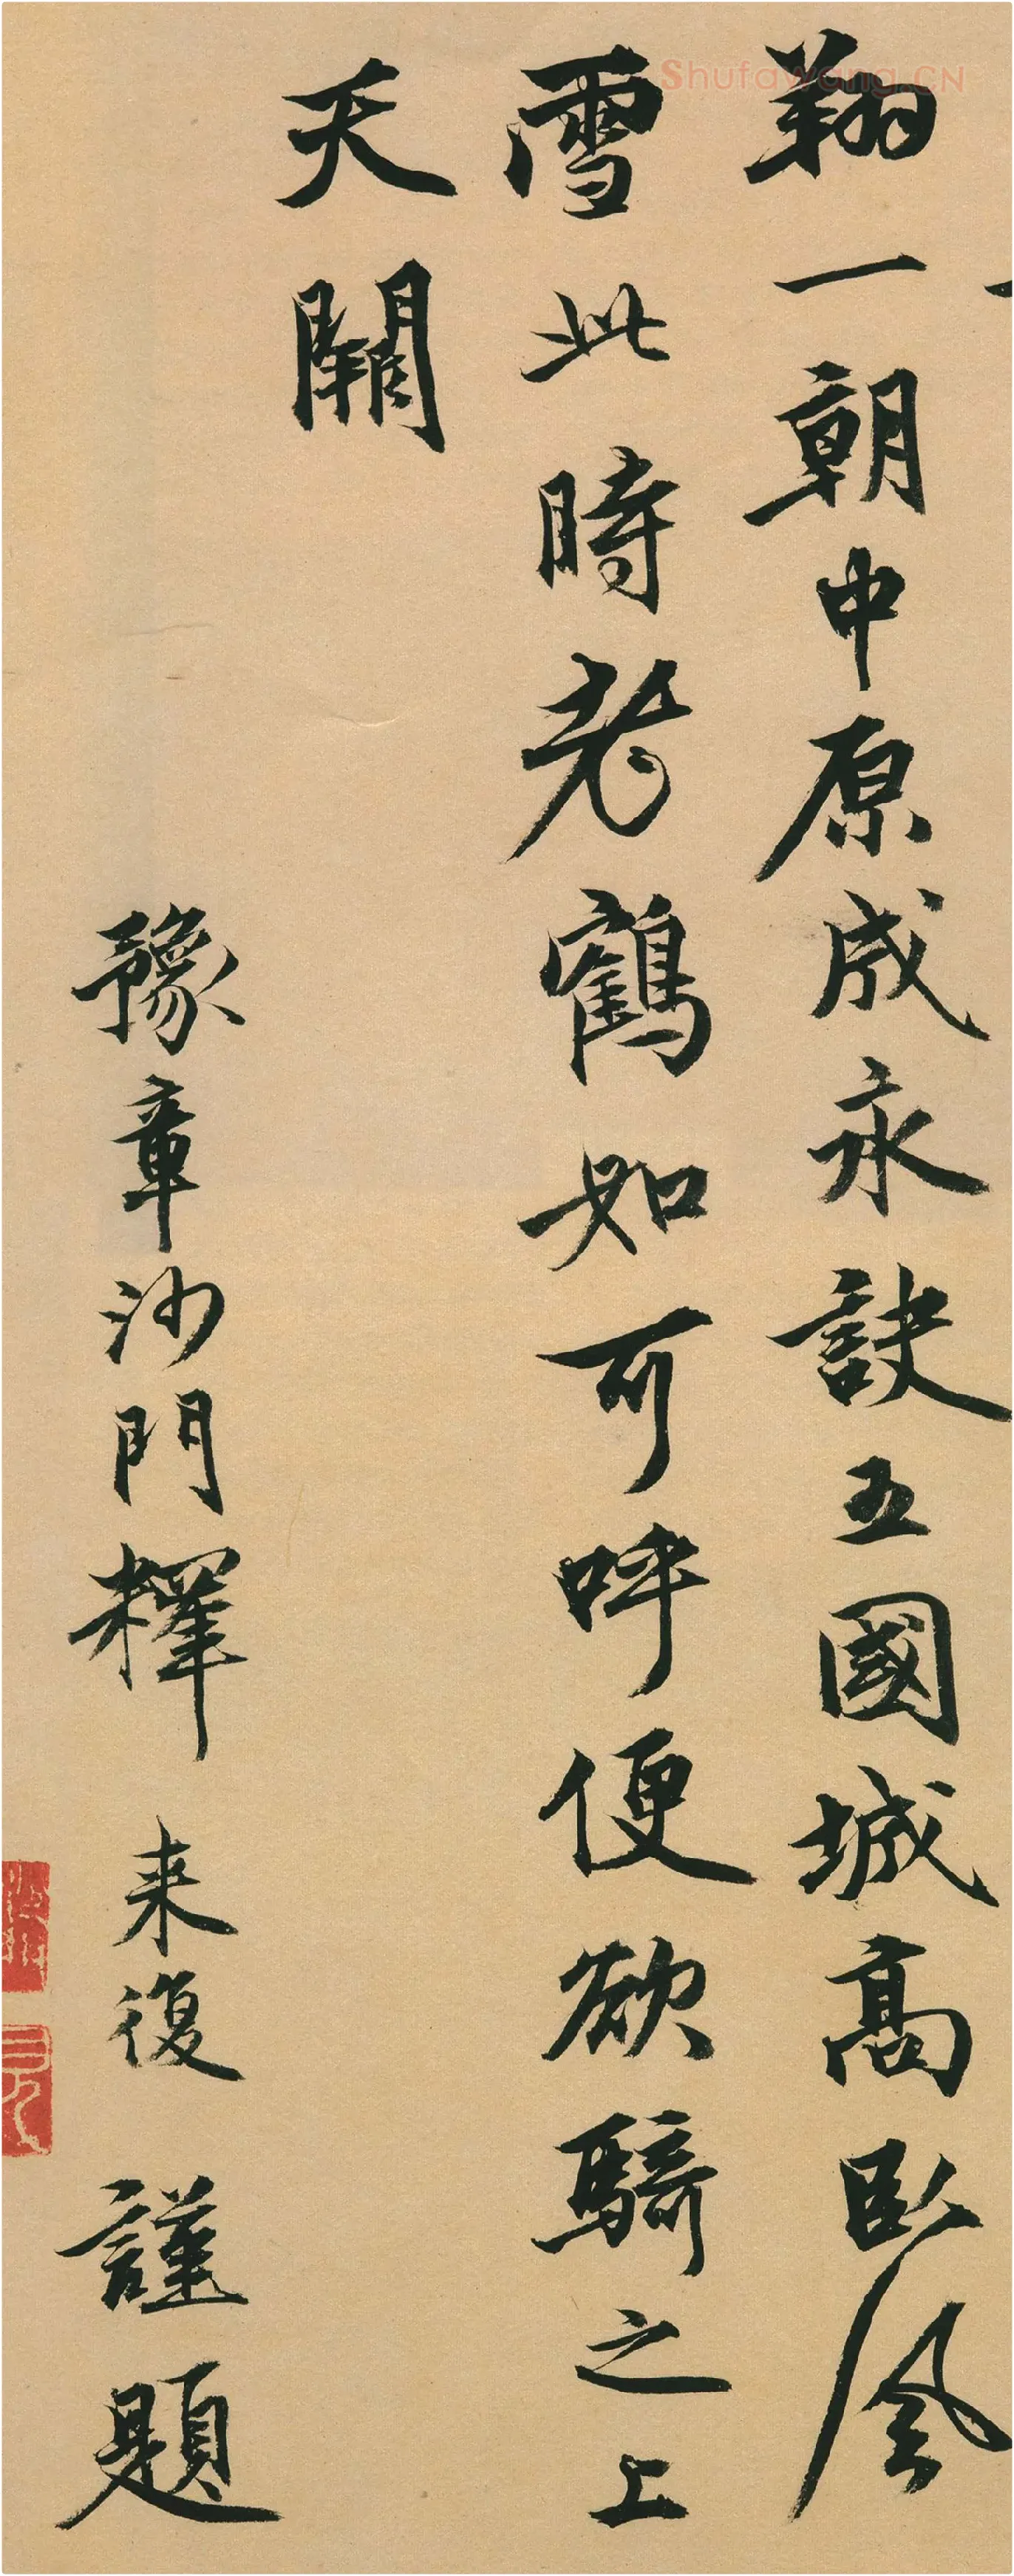 翔一朝中原成永訣五國城高臥風
雪此時老鶴如可呼便欲騎之上
天闕
豫章沙門釋来復謹題
Shufawang.CN